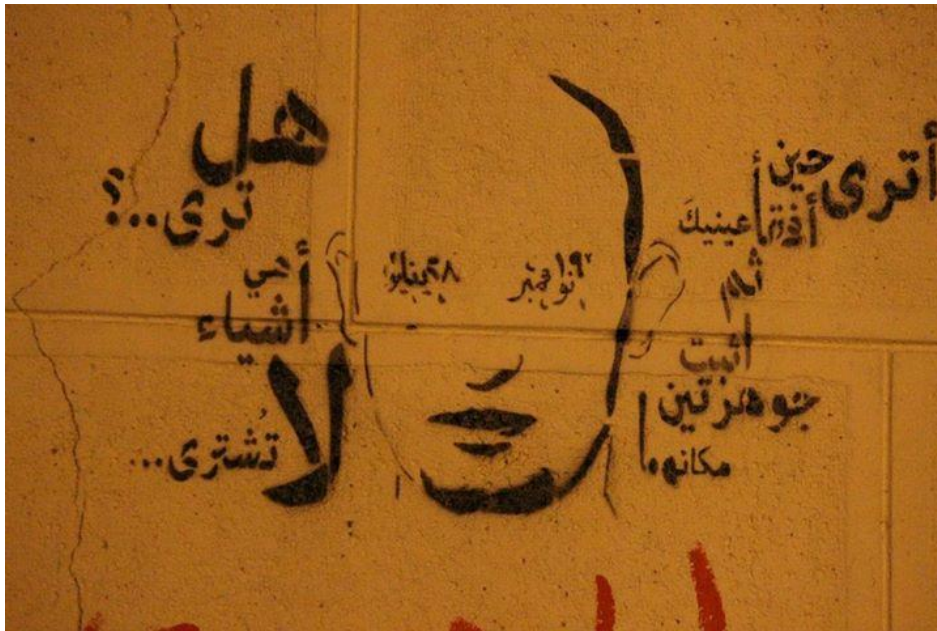 أترى حين
أفقأ عينيكَ
ثم
اثبت
جوهرتين
مكانهما
١٩ نوفمبر
٢٨ يناير
هل
ترى..؟
هي
أشياء
لا
تُشترى...